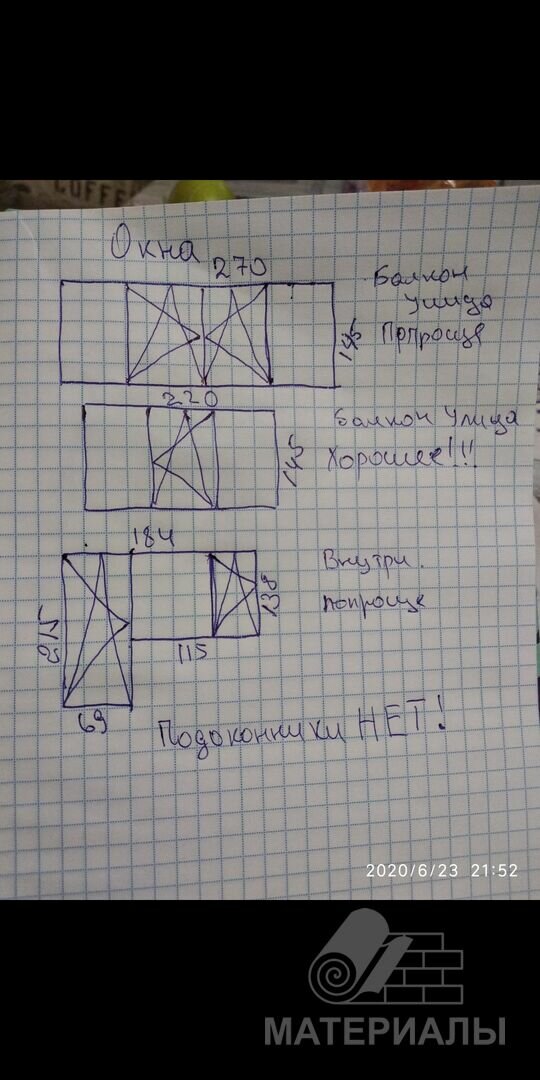 COFFEE
Окна
270
Балкон
улица
Попроще
145
220
Балкон улица
Хорошее!!!
145
184
Внутри.
попроще
138
215
115
69
Подоконники НЕТ!
2020/6/23 21:52
МАТЕРИАЛЫ